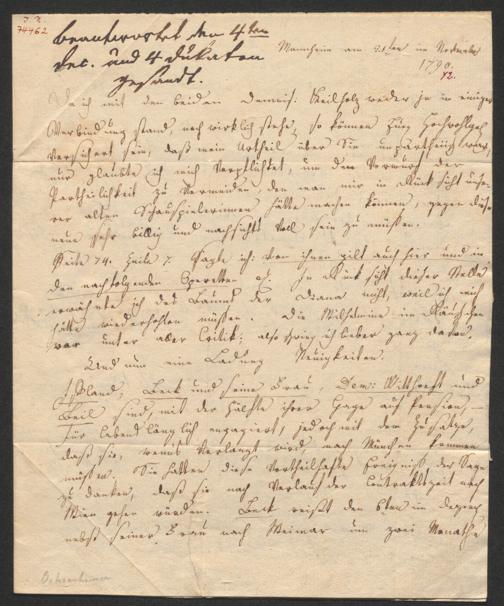 I. N.
74462
beantwortet den 4ten
Dec. und 4 Dukaten
gesandt.
Mannheim am 21ten im November
1790.
Da ich mit den beiden Demois: Keilholz weder je in einiger
Verbindung stand, noch wirklich stehe, so können Euer Hochwohlgeb
versichert sein, daß mein Urtheil über Sie unpartheiisch war,
nur glaubte ich mich verpflichtet, um dem Vorwurf der
Partheilichkeit zu vermeiden den man mir in Rücksicht unse-
rer alten Schauspielerinnen hätte machen können, gegen diese
neue sehr billig und nachsichtsvoll sein zu müssen.
Seite 74. Zeile 7. sagte ich: von ihnen gilt auch hier und in
den nachfolgenden Operetten In Rücksicht dieser Stelle
erwähnte ich des Baums der Diana nicht, weil ich mich
hätte wiederhohlen müssen. Die Wilhelmine im Räuschchen
war unter aller Critik; also schwieg ich lieber ganz davon.
Und nun eine Ladung Neuigkeiten.
Iffland, Beck und seine Frau, Dem: Witthoeft und
Beil sind, mit der Hälfte ihrer Gage auf Pension, —
für lebenslänglich engagiert, jedoch mit dem Zusatze,
daß sie, wenns verlangt wird, nach München kommen
müssen. Sie hatten diese vortheilhafte Ereigniß der Sage
zu danken, daß sie nach Verlauf der Contraktszeit nach
Wien gehen würden. Beck reißt den 6ten im Decemb
nebst seiner Frau nach Weimar um zwei Monathe
Ochsenheimer